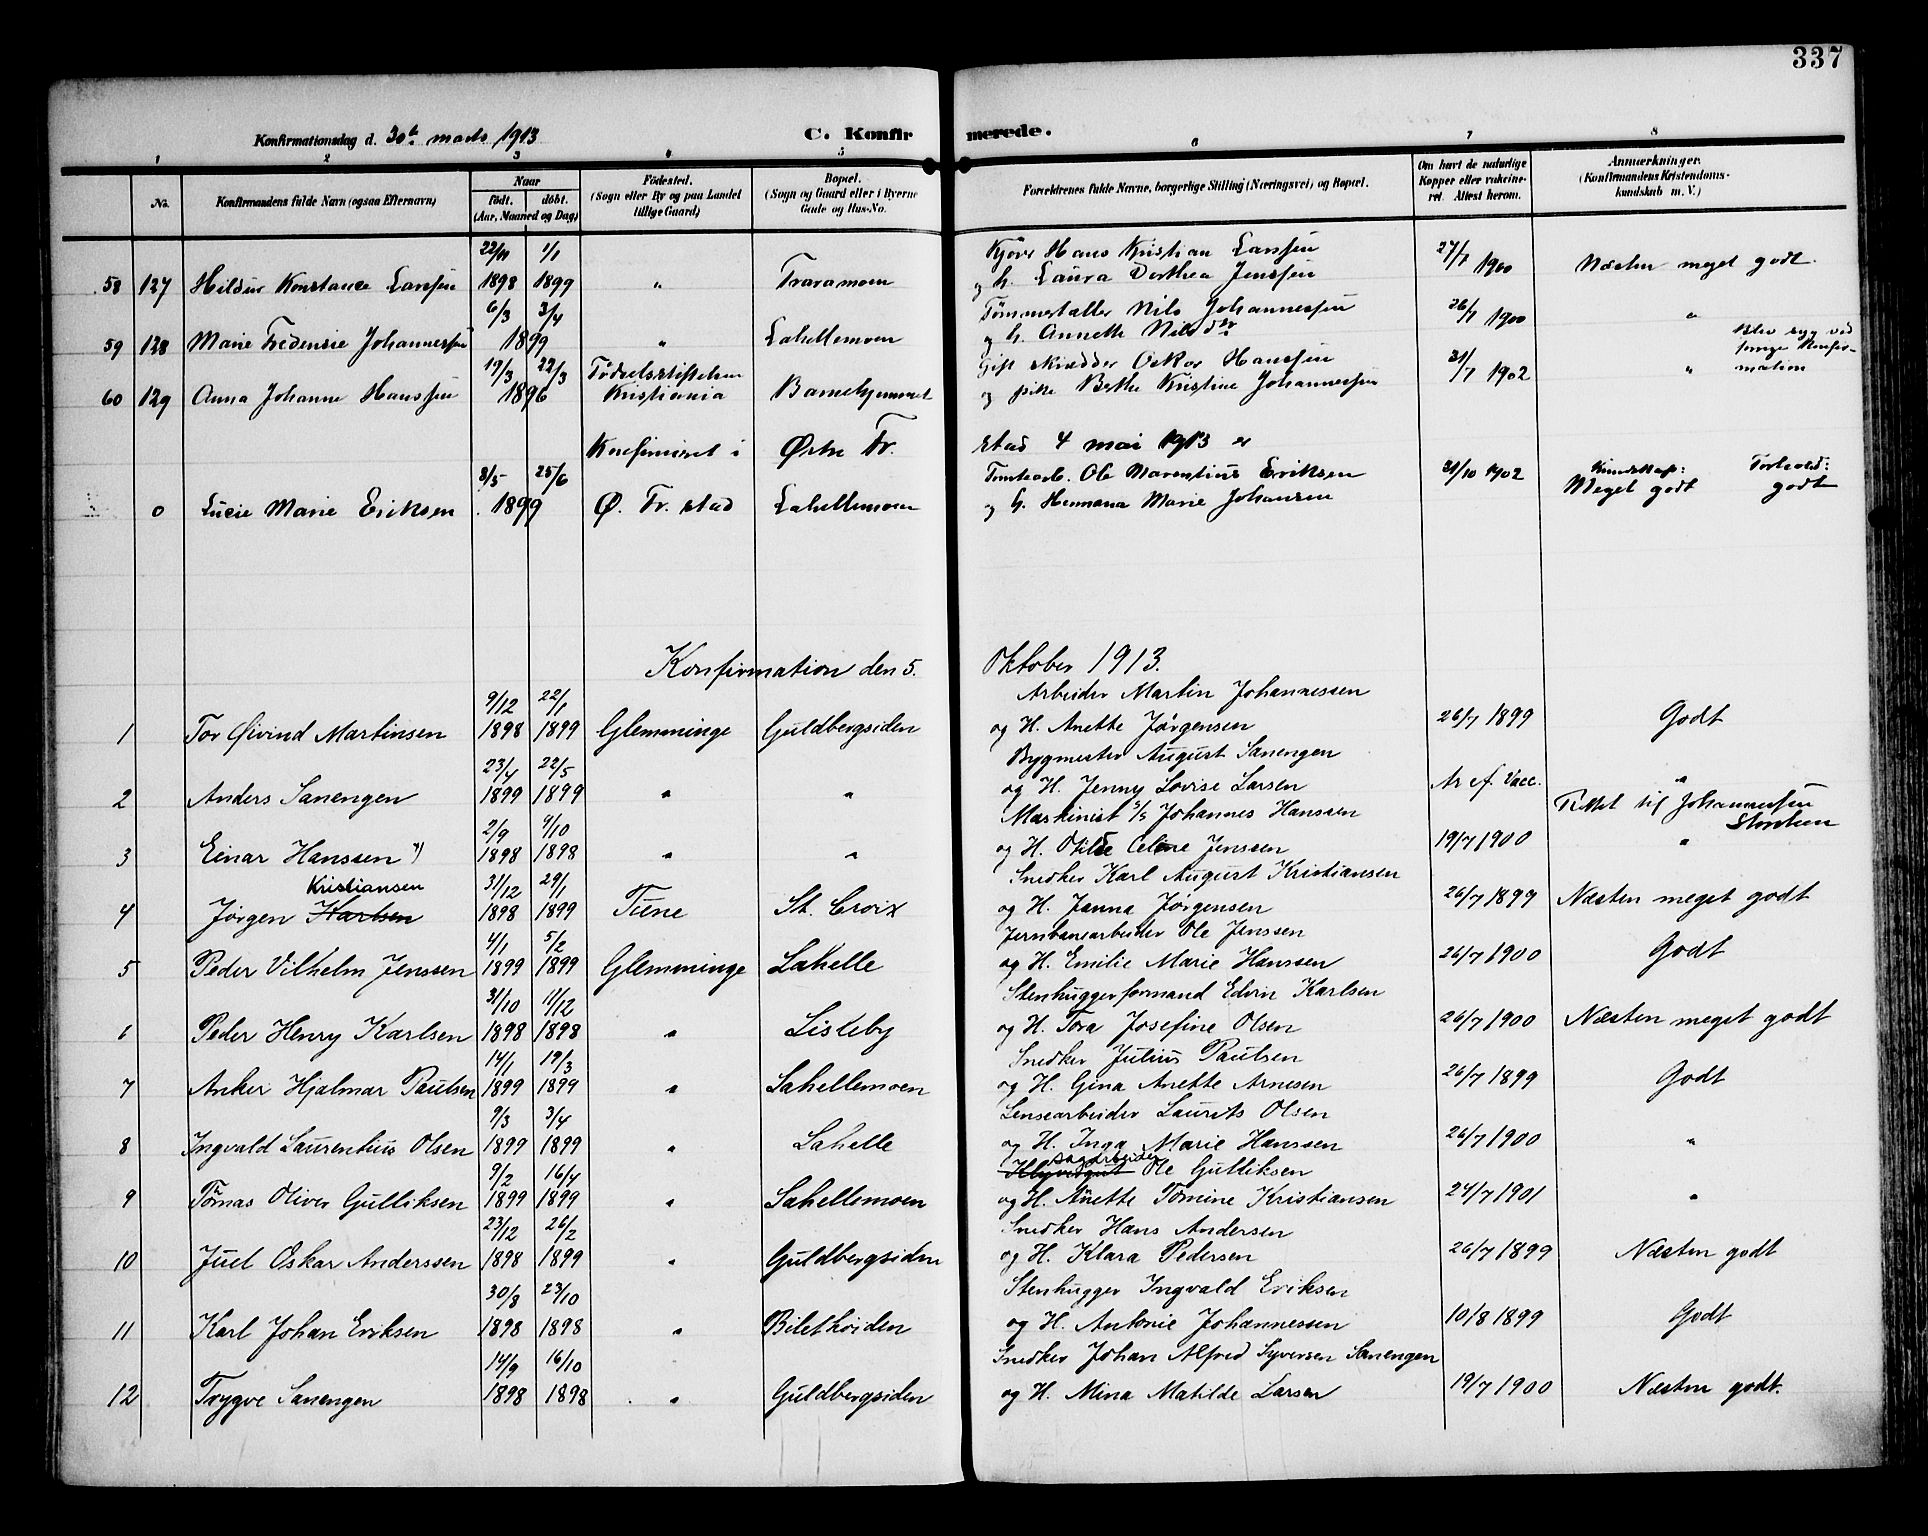 337
Konfirmationsdag d. 30te marts 1913 C. Konfirmerede.
1 2 3 4 5 6 7 8
No. Konfirmandens fulde Navn (ogsaa Efternavn) Naar født. døbt. (Aar, Maaned og Dag) Födested. (Sogn eller By og paa Landet tillige Gaard) Bopæl. (Sogn og Gaard eller i Byerne Gade og Hus-No. Forældrenes fulde Navne, borgerlige Stilling (Næringsvei) og Bopæl. Om havt de naturlige Kopper eller vakcineret. Attest herom. Anmerkninger. (Konfirmandens Kristendomskundskab m. V.)
22/11 1/1 Kjøre Hans Kristian Larssen 27/7 1900
58 127 Hildur Konstance Larssen 1898 1899 " Traramoen og h. Laura Dorthea Jenssen Næsten meget godt.
6/3 3/4 Tømmertæller Nils Johannessen 26/7 1900 "
59 128 Marie Fredensie Johannessen 1899 " Lahellemoen og h. Annette Nilsdtr Blev syg ved forrige Konfirmation
19/3 22/3 Fødselsstiftelsen Gift skrædder Oskar Hanssen 31/7 1902 "
60 129 Anna Johanne Hanssen 1896 Kristiania Barnehjemmet og pike Berthe Kristine Johannessen
Konfirmeret i Østre Fr.stad 4 mai 1913 er
3/5 25/6 Ole Marentius Eriksen 31/10 1902 Kundskap: Forhold:
0 Lucie Marie Eriksen 1899 Ø. Fr.stad Lahellemoen og h. Hermana Marie Johansen Meget godt godt
Konfirmation den 5. Oktober 1913.
9/12 22/1 Arbeider Martin Johannessen
1 Tor Øivind Martinsen 1898 1899 Glemminge Guldbergsiden og H. Anette Jørgensen 26/7 1899 Godt
23/4 22/5 Bygmester August Sanengen
2 Anders Sanengen 1899 1899 " " og H. Jenny Lovise Larsen Ar af. Vacc. "
2/9 9/10 Maskinist s/s Johannes Hanssen Rettet til Johannessen Storsken
3 Einar Hanssen *) 1898 1898 " " og H. Otilde Celine Jenssen 19/7 1900 "
Kristiansen 31/12 29/1 Snedker Karl August Kristiansen
4 Jørgen Karlsen 1898 1899 Tune St. Croix og H. Janna Jørgensen 26/7 1899 Næsten meget godt
4/1 5/2 Jernbanearbeider Ole Jenssen
5 Peder Vilhelm Jenssen 1899 1899 Glemminge Lahelle og H. Emilie Marie Hanssen 26/7 1900 Godt
31/10 11/12 Stenhuggerformand Edvin Karlsen
6 Peder Henry Karlsen 1898 1898 " Lisleby og H. Tora Josefine Olsen 26/7 1900 Næsten meget godt
14/1 19/3 Snedker Julius Paulsen
7 Anker Hjalmar Paulsen 1899 1899 " Lahellemoen og H. Gina Anette Arnesen 26/7 1899 Godt
9/3 3/4 Lensearbeider Laurits Olsen
8 Ingvald Laurentius Olsen 1899 1899 " Lahelle og H. Inga Marie Hanssen 26/7 1900 "
9/2 16/4 sagarbeider Ole Gulliksen
9 Tomas Oliver Gulliksen 1899 1899 " Lahellemoen og H. Anette Tomine Kristiansen 24/7 1901 "
23/12 26/2 Snedker Hans Andersen
10 Juel Oskar Anderssen 1898 1899 " Guldbergsiden og H. Klara Pedersen 26/7 1899 Næsten godt
30/8 23/10 Stenhugger Ingvald Eriksen
11 Karl Johan Eriksen 1898 1898 " Bilethøiden og H. Antonie Johannessen 10/8 1899 Godt
14/9 16/10 Snedker Johan Alfred Syversen Sanengen
12 Trygve Sanengen 1898 1898 " Guldbergsiden og H. Mina Matilde Larsen 19/7 1900 Næsten godt.